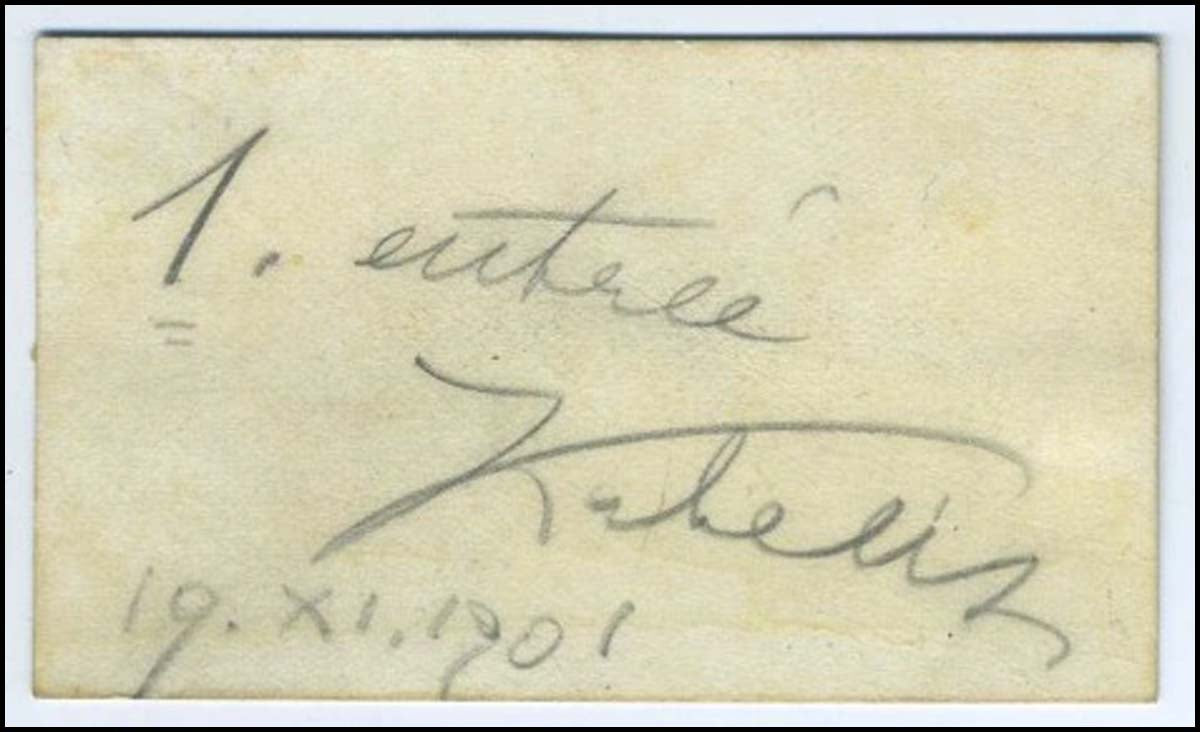 1. entrée
Kubelík
19. XI. 1901